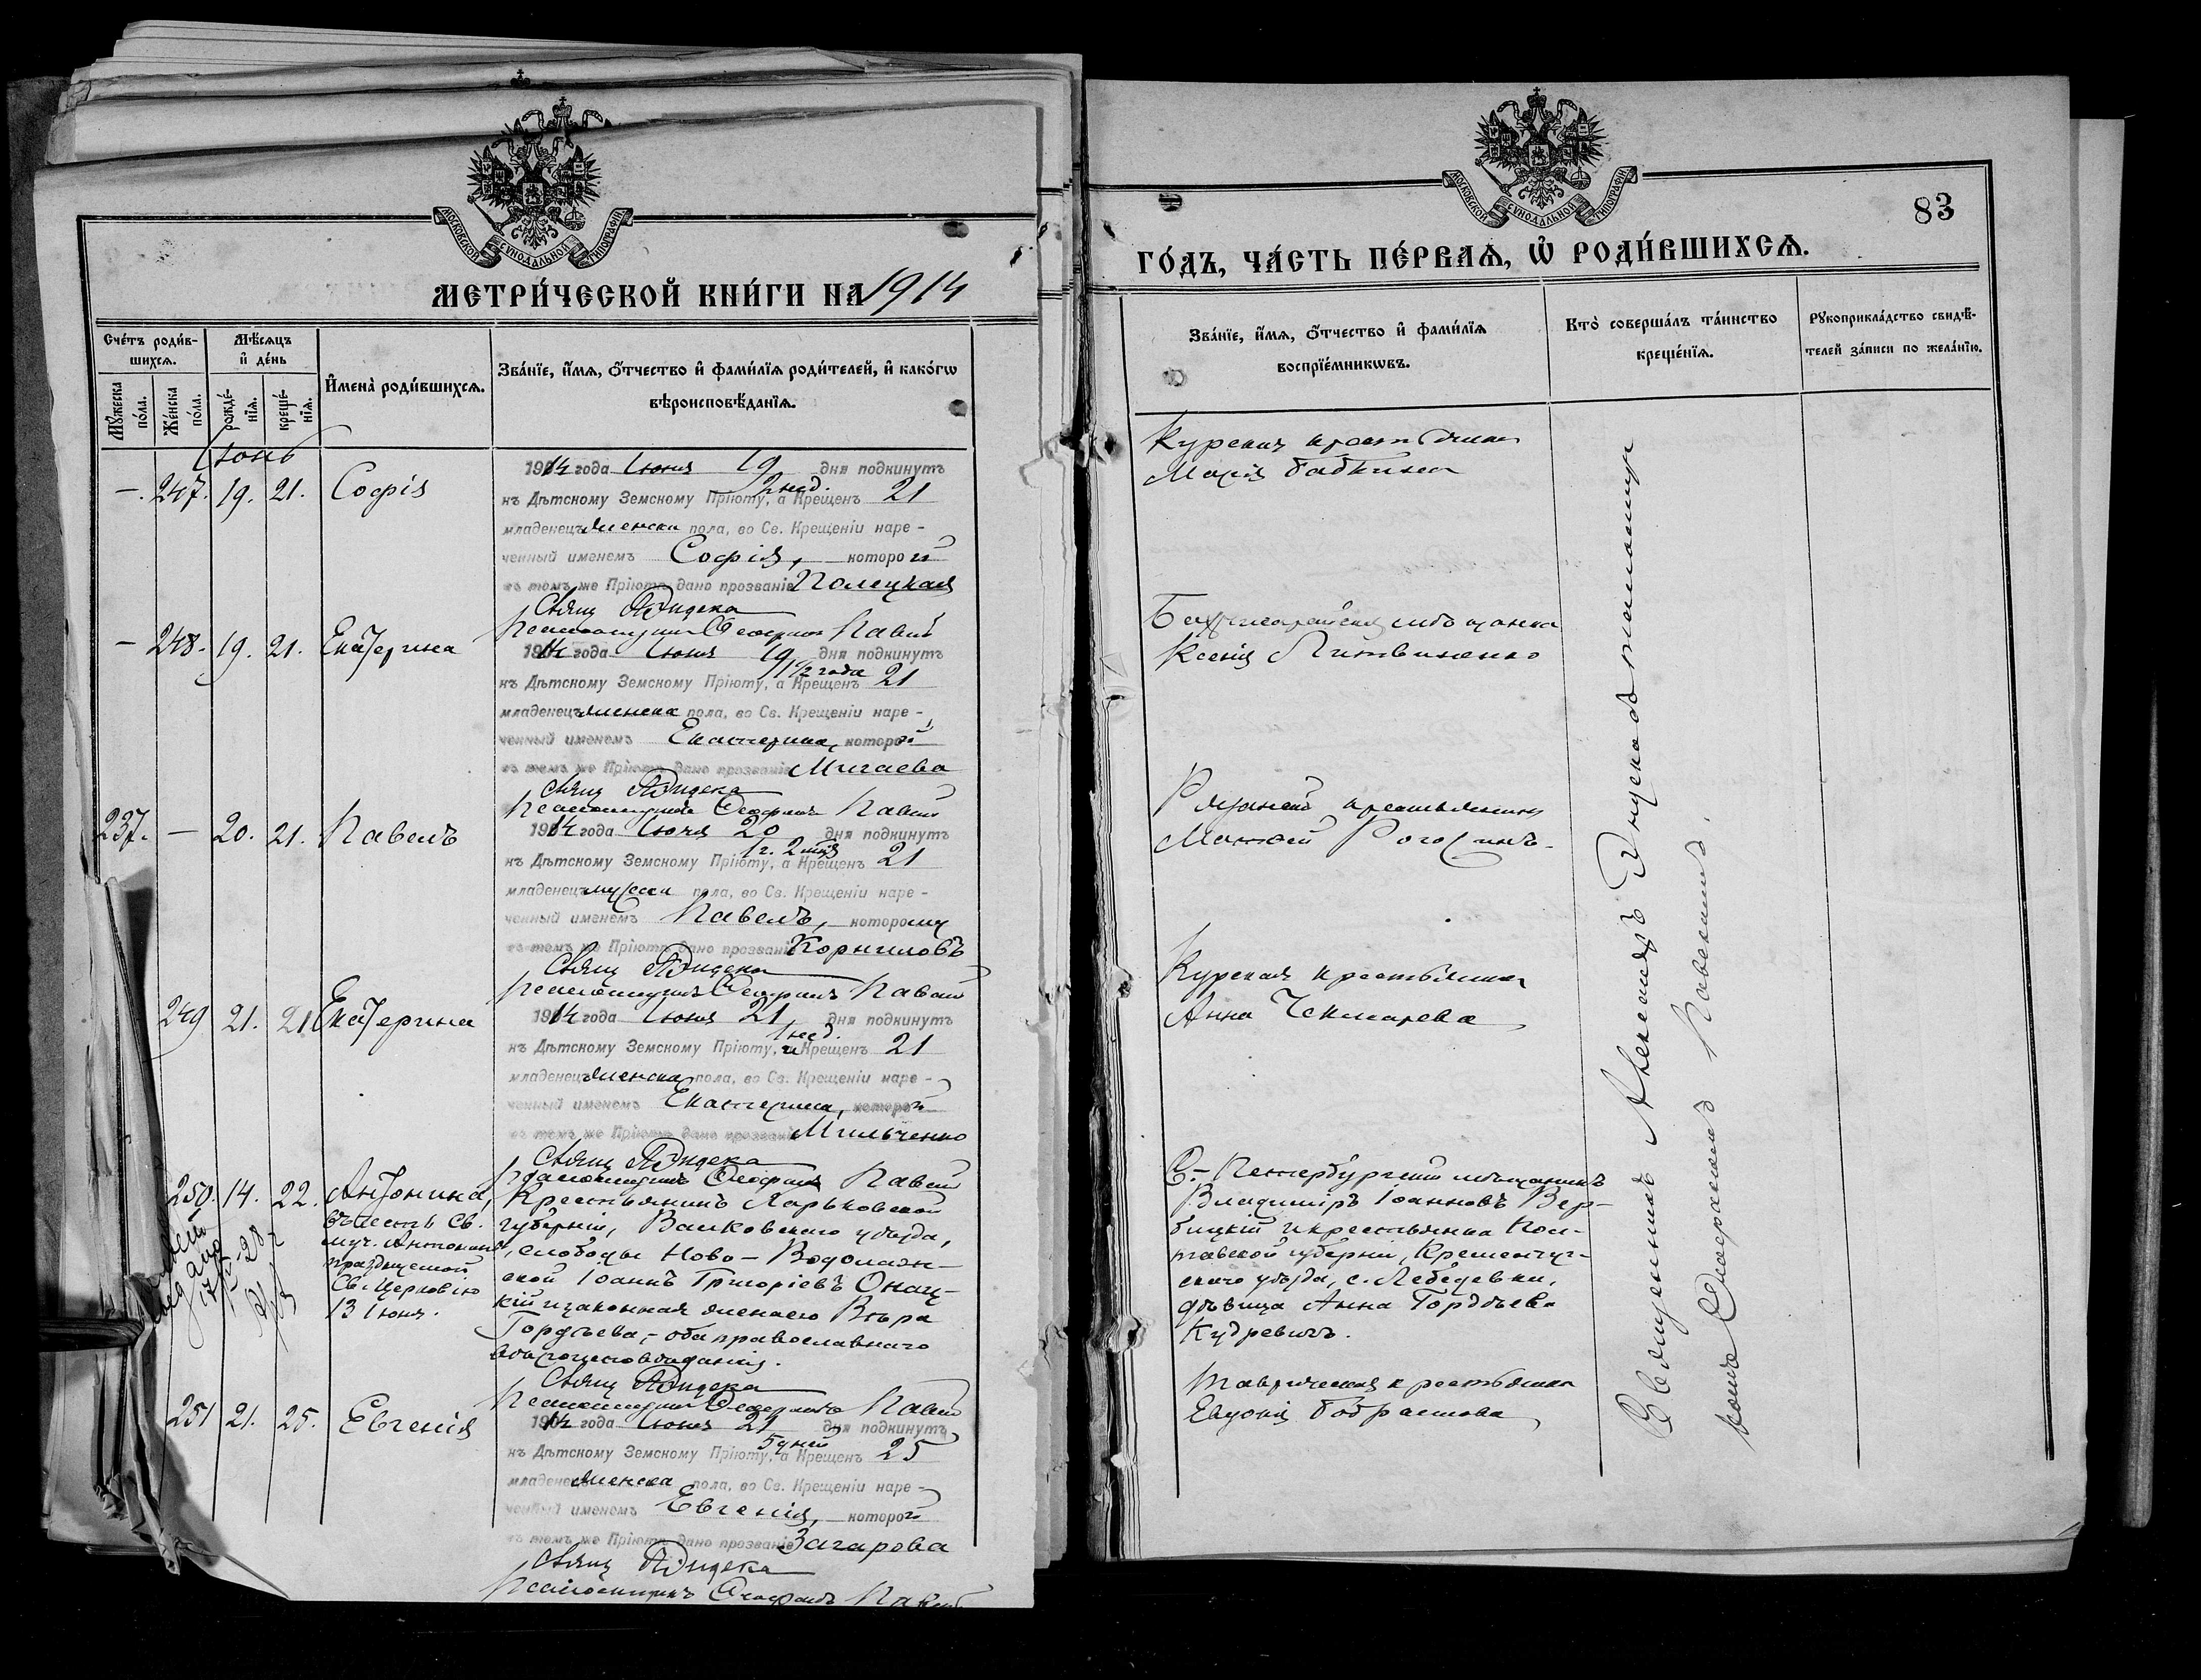 МОСКОВСКОЙ СѴНОДАЛЬНОЙ ТИПОГРАФІИ
МЕТРИ́ЧЕСКОЙ КНИ́ГИ НА 1914
Сче́тъ роди́в-
шихсѧ.
Мѣ́сѧцъ
и҆ де́нь
Мꙋ́жеска
по́ла.
Же́нска
по́ла.
рожде́-
нїѧ.
креще́-
нїѧ.
И҆мена̀ роди́вшихсѧ.
Зва́нїе, и҆́мѧ, ѻ҆́тчество и҆ фами́лїѧ роди́телей, и҆ како́гѡ
вѣроисповѣ́данїѧ.
Іюнь
—. 247. 19. 21. Софія
1914 года Іюня 19 дня подкинутъ
2 нед.
къ Дѣтскому Земскому Пріюту, а Крещенъ 21
младенецъ женска пола, во Св. Крещеніи наре-
ченный именемъ Софія, которой
въ томъ же Пріютѣ дано прозваніе Полецкая
Свящ.
Псаломщикъ
— 248. 19. 21. Екатерина
1914 года Іюня 19 дня подкинутъ
1 1/2 года
къ Дѣтскому Земскому Пріюту, а Крещенъ 21
младенецъ женска пола, во Св. Крещеніи наре-
ченный именемъ Екатерина, которой
въ томъ же Пріютѣ дано прозваніе Мигаева
Свящ.
Псаломщикъ
237. — 20. 21. Павелъ
1914 года Іюня 20 дня подкинутъ
1 г. 2 мѣс
къ Дѣтскому Земскому Пріюту, а Крещенъ 21
младенецъ мужеска пола, во Св. Крещеніи наре-
ченный именемъ Павелъ, которому
въ томъ же Пріютѣ дано прозваніе Корниловъ
Свящ.
Псаломщикъ
249 21. 21 Екатерина
1914 года Іюня 21 дня подкинутъ
1 нед.
къ Дѣтскому Земскому Пріюту, и Крещенъ 21
младенецъ женска пола, во Св. Крещеніи наре-
ченный именемъ Екатерина, которой
въ томъ же Пріютѣ дано прозваніе Мильченко
Свящ.
Псаломщикъ
250. 14. 22. Антонина,
въ честь Св.
муч. Антонины,
празднуемой
Св. Церковію
13 Іюня.
Крестьянинъ Харьковской
губерніи, Валковскаго уѣзда,
слободы Ново-Водолаж-
ской Іоаннъ Григоріевъ Онац-
кій и законная жена его Вѣра
Гордѣева, - оба православнаго
вѣроисповѣданія.
Свящ.
Псаломщикъ
251 21. 25. Евгенія
1914 года Іюня 21 дня подкинутъ
5 дней
къ Дѣтскому Земскому Пріюту, а Крещенъ 25
младенецъ женска пола, во Св. Крещеніи наре-
ченный именемъ Евгенія, которой
въ томъ же Пріютѣ дано прозваніе Загарова
Свящ.
Псаломщикъ
МОСКОВСКОЙ СѴНОДАЛЬНОЙ ТИПОГРАФІИ
83
ГО́ДЪ, ЧА́СТЬ ПЕ́РВАѦ, Ѡ҆ РОДИ́ВШИХСѦ.
Зва́нїе, и҆́мѧ, ѻ҆́тчество и҆ фами́лїѧ
воспрїе́мникѡвъ.
Кто̀ соверша́лъ та́инство
креще́нїѧ.
Рꙋкоприкла́дство свидѣ́-
телей за́писи по жела́нїю.
Курская крестьянка
Марія Бабкина
мѣщанка
Ксенія Литвиненко
Рязанскій крестьянинъ
Матвѣй Рогожинъ.
Курская крестьянка
Анна Чекмарева
С.-Петербургскій мѣщанинъ
Владиміръ Іоанновъ Вер-
бицкій и крестьянка Пол-
тавской губерніи, Кременчуг-
скаго уѣзда, с. Лебедевки,
дѣвица Анна Гордѣева
Кудревичъ.
Таврическая крестьянка
Евдокія
Священникъ Александръ съ псаломщи-
комъ